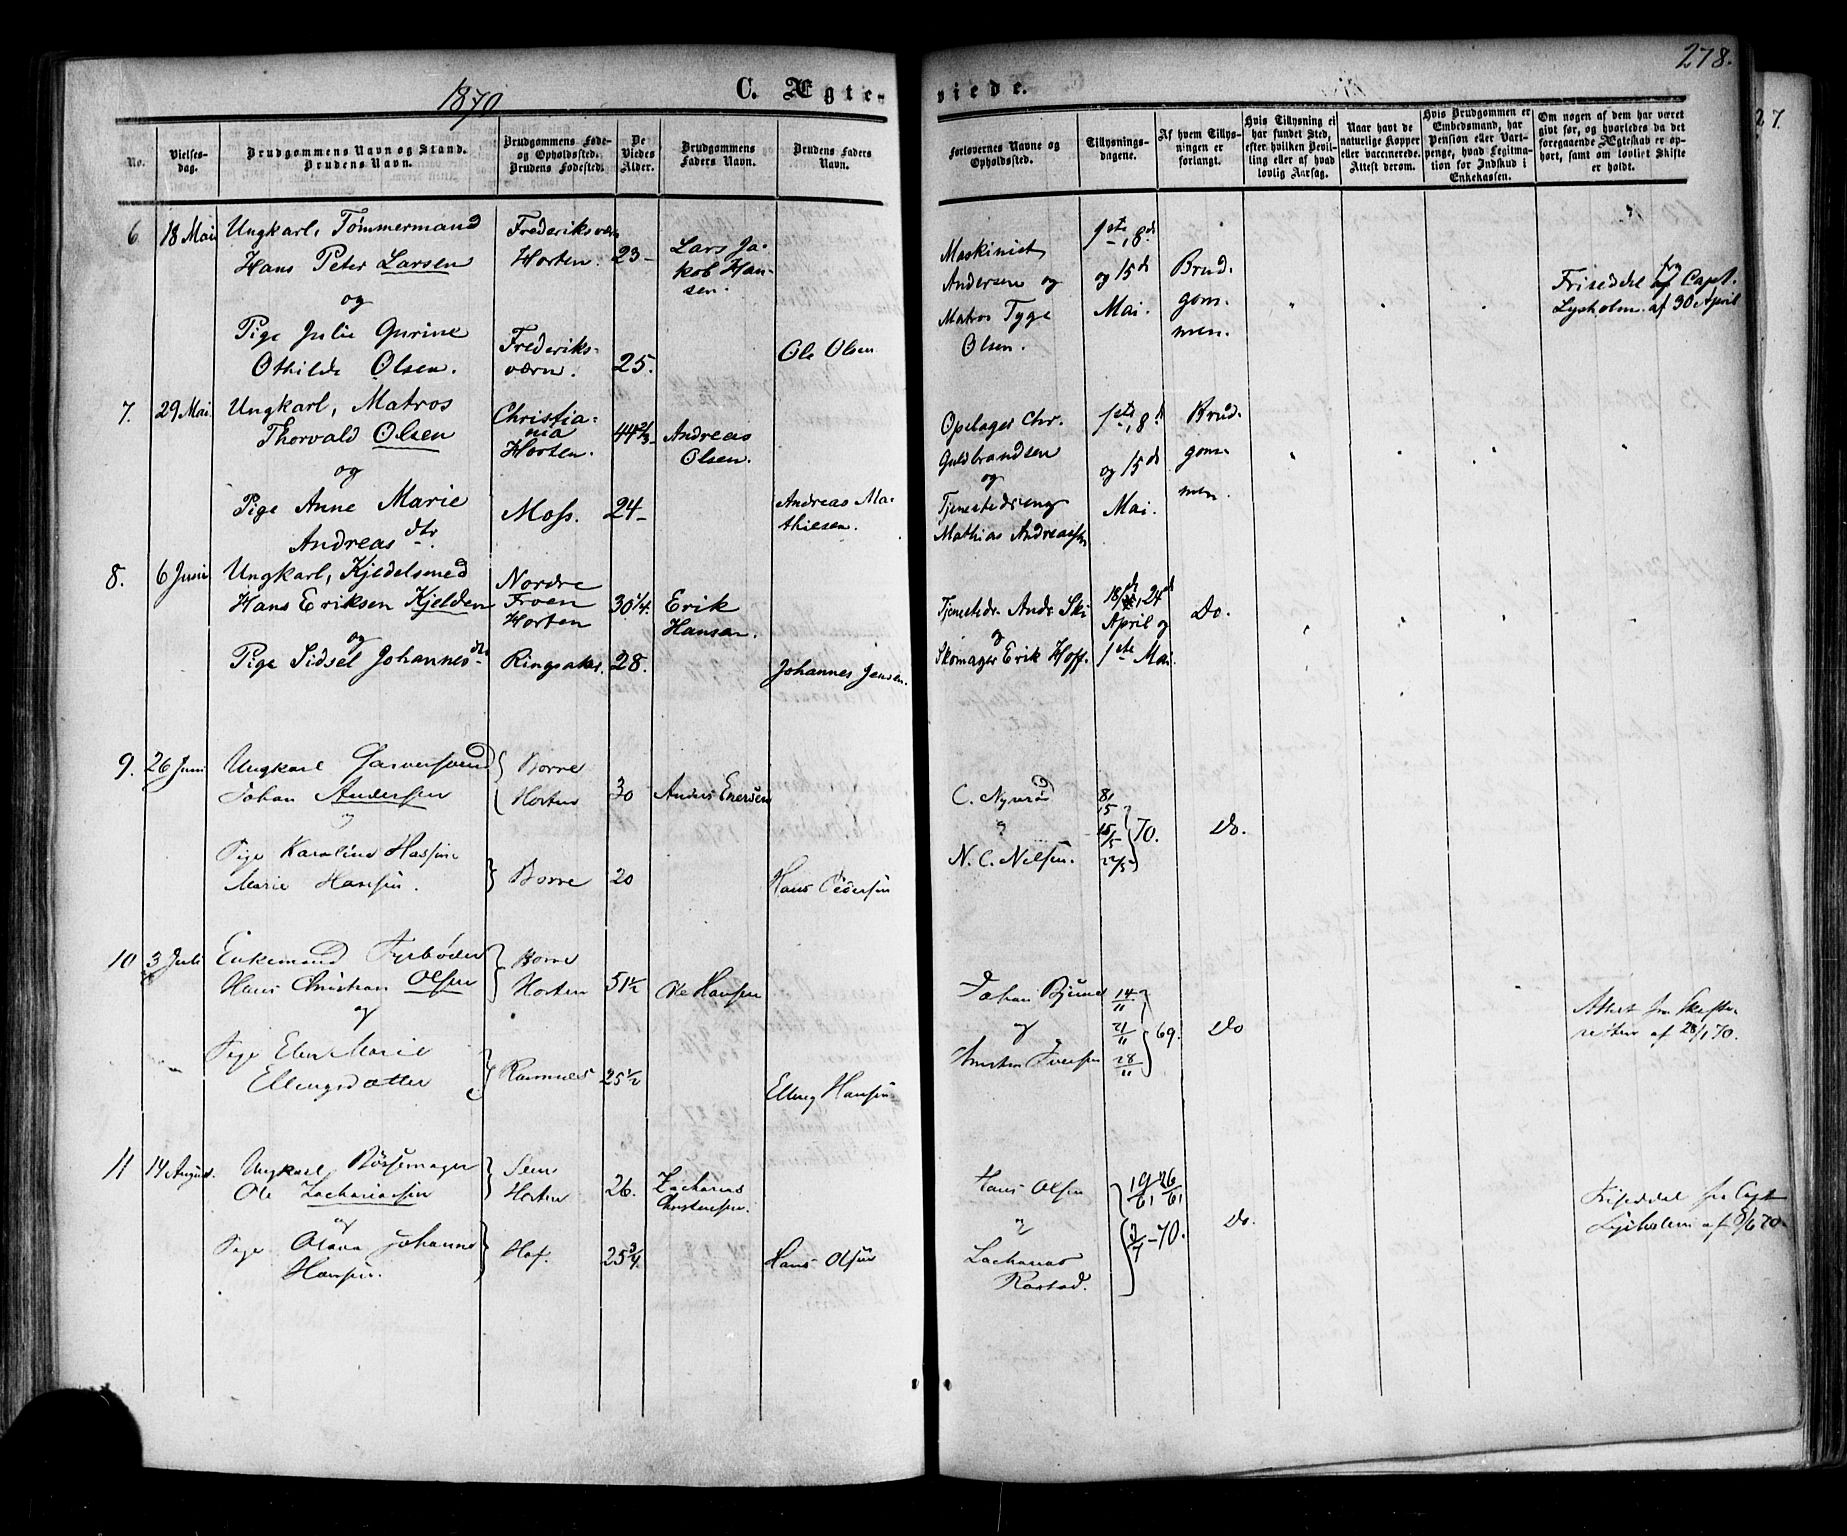 278.
1870
C. Ægte-
viede.
27.
No.
Vielses-
dag.
Brudgommens Navn og Stand.
Brudens Navn.
Brudgommens Føde-
og Opholdssted.
Brudens Fødested.
De
Viedes
Alder.
Brudgommens
Faders Navn.
Brudens Faders
Navn.
Forlovernes Navne og
Opholdssted.
Tillysnings-
dagene.
Af hvem Tillys-
ningen er
forlangt.
Hvis Tillysning ei
har fundet Sted,
efter hvilken Bevil-
ling eller af hvad
lovlig Aarsag.
Naar havt de
naturlige Kopper
eller vaccinerede.
Attest derom.
Hvis Brudgommen er
Embedsmand, har
Pension eller Vart-
penge, hvad Legitima-
tion for Indskud i
Enkekassen.
Om nogen af dem har været
givt før, og hvorledes da det
foregaaende Ægteskab er op-
hørt, samt om lovligt Skifte
er holdt.
6. 18 Mai
Ungkarl, Tømmermand
Hans Peter Larsen
og
Pige Julie Gurine
Othilde Olsen.
Frederiksværn
Horten.
Frederiks-
værn.
23
25.
Lars Ja-
kob Han-
sen.
Ole Olsen
Maskinist
Andersen og
Matros Tyge
Olsen.
1ste, 8de
og 15de
Mai.
Brud-
gom-
men.
Friseddel fra Capt.
Lysholm af 30 April
7. 29 Mai
Ungkarl, Matros
Thorvald Olsen
og
Pige Anne Marie
Andreasdtr.
Christia-
nia
Horten.
Moss.
24
Andreas
Olsen.
Andreas Ma-
thiesen.
Opslager Chr.
Guldbrandsen
og
Tjenestedreng
Mathias Andreassen
1ste, 8de
og 15de
Mai.
Brud-
gom-
men.
8. 6 Juni
Ungkarl, Kjedelsmed
Hans Eriksen Kjelden
og
Pige Sidsel Johannesdtr
Nordre
Froen
Horten
Ringsaker.
30 1/4.
28.
Erik
Hansen.
Johannes Jensen.
Tjenestedr. Andr. Ski
og
Skomager Erik Hoff.
18de, 24de
April og
1ste Mai.
Do.
9. 26 Juni
Ungkarl Garversvend
Johan Andersen
og
Pige Karoline Hassine
Marie Hansen.
Borre
Horten
Borre
30
20
Anders Enersen
Hans Pedersen
C. Nyerød
og
N. C. Nilsen.
8/5
15/5
22/5
70.
Do.
10 3 Juli
Enkemand Fyrbøder
Hans Christian Olsen
og
Pige Elen Marie
Ellingsdatter
Borre
Horten
Ramnes
51 1/2
25 1/2
Ole Hansen
Elling Hansen
Johan Bjune
og
Christen Iversen
14/11
21/11
28/11
69.
Do
Attest fra Skifte-
retten af 28/1 70.
11 14 August.
Ungkarl Bøssemager
Ole Zachariassen
og
Pige Olava Johanne
Hansen.
Sem
Horten
Hof.
26.
25 3/4.
Zacharias
Christensen.
Hans Olsen
Hans Olsen
og
Zacharias
Rastad.
19/6, 26/6,
3/7 - 70.
Do.
Friseddel fra Capt
Lysholm af 8/6 70.